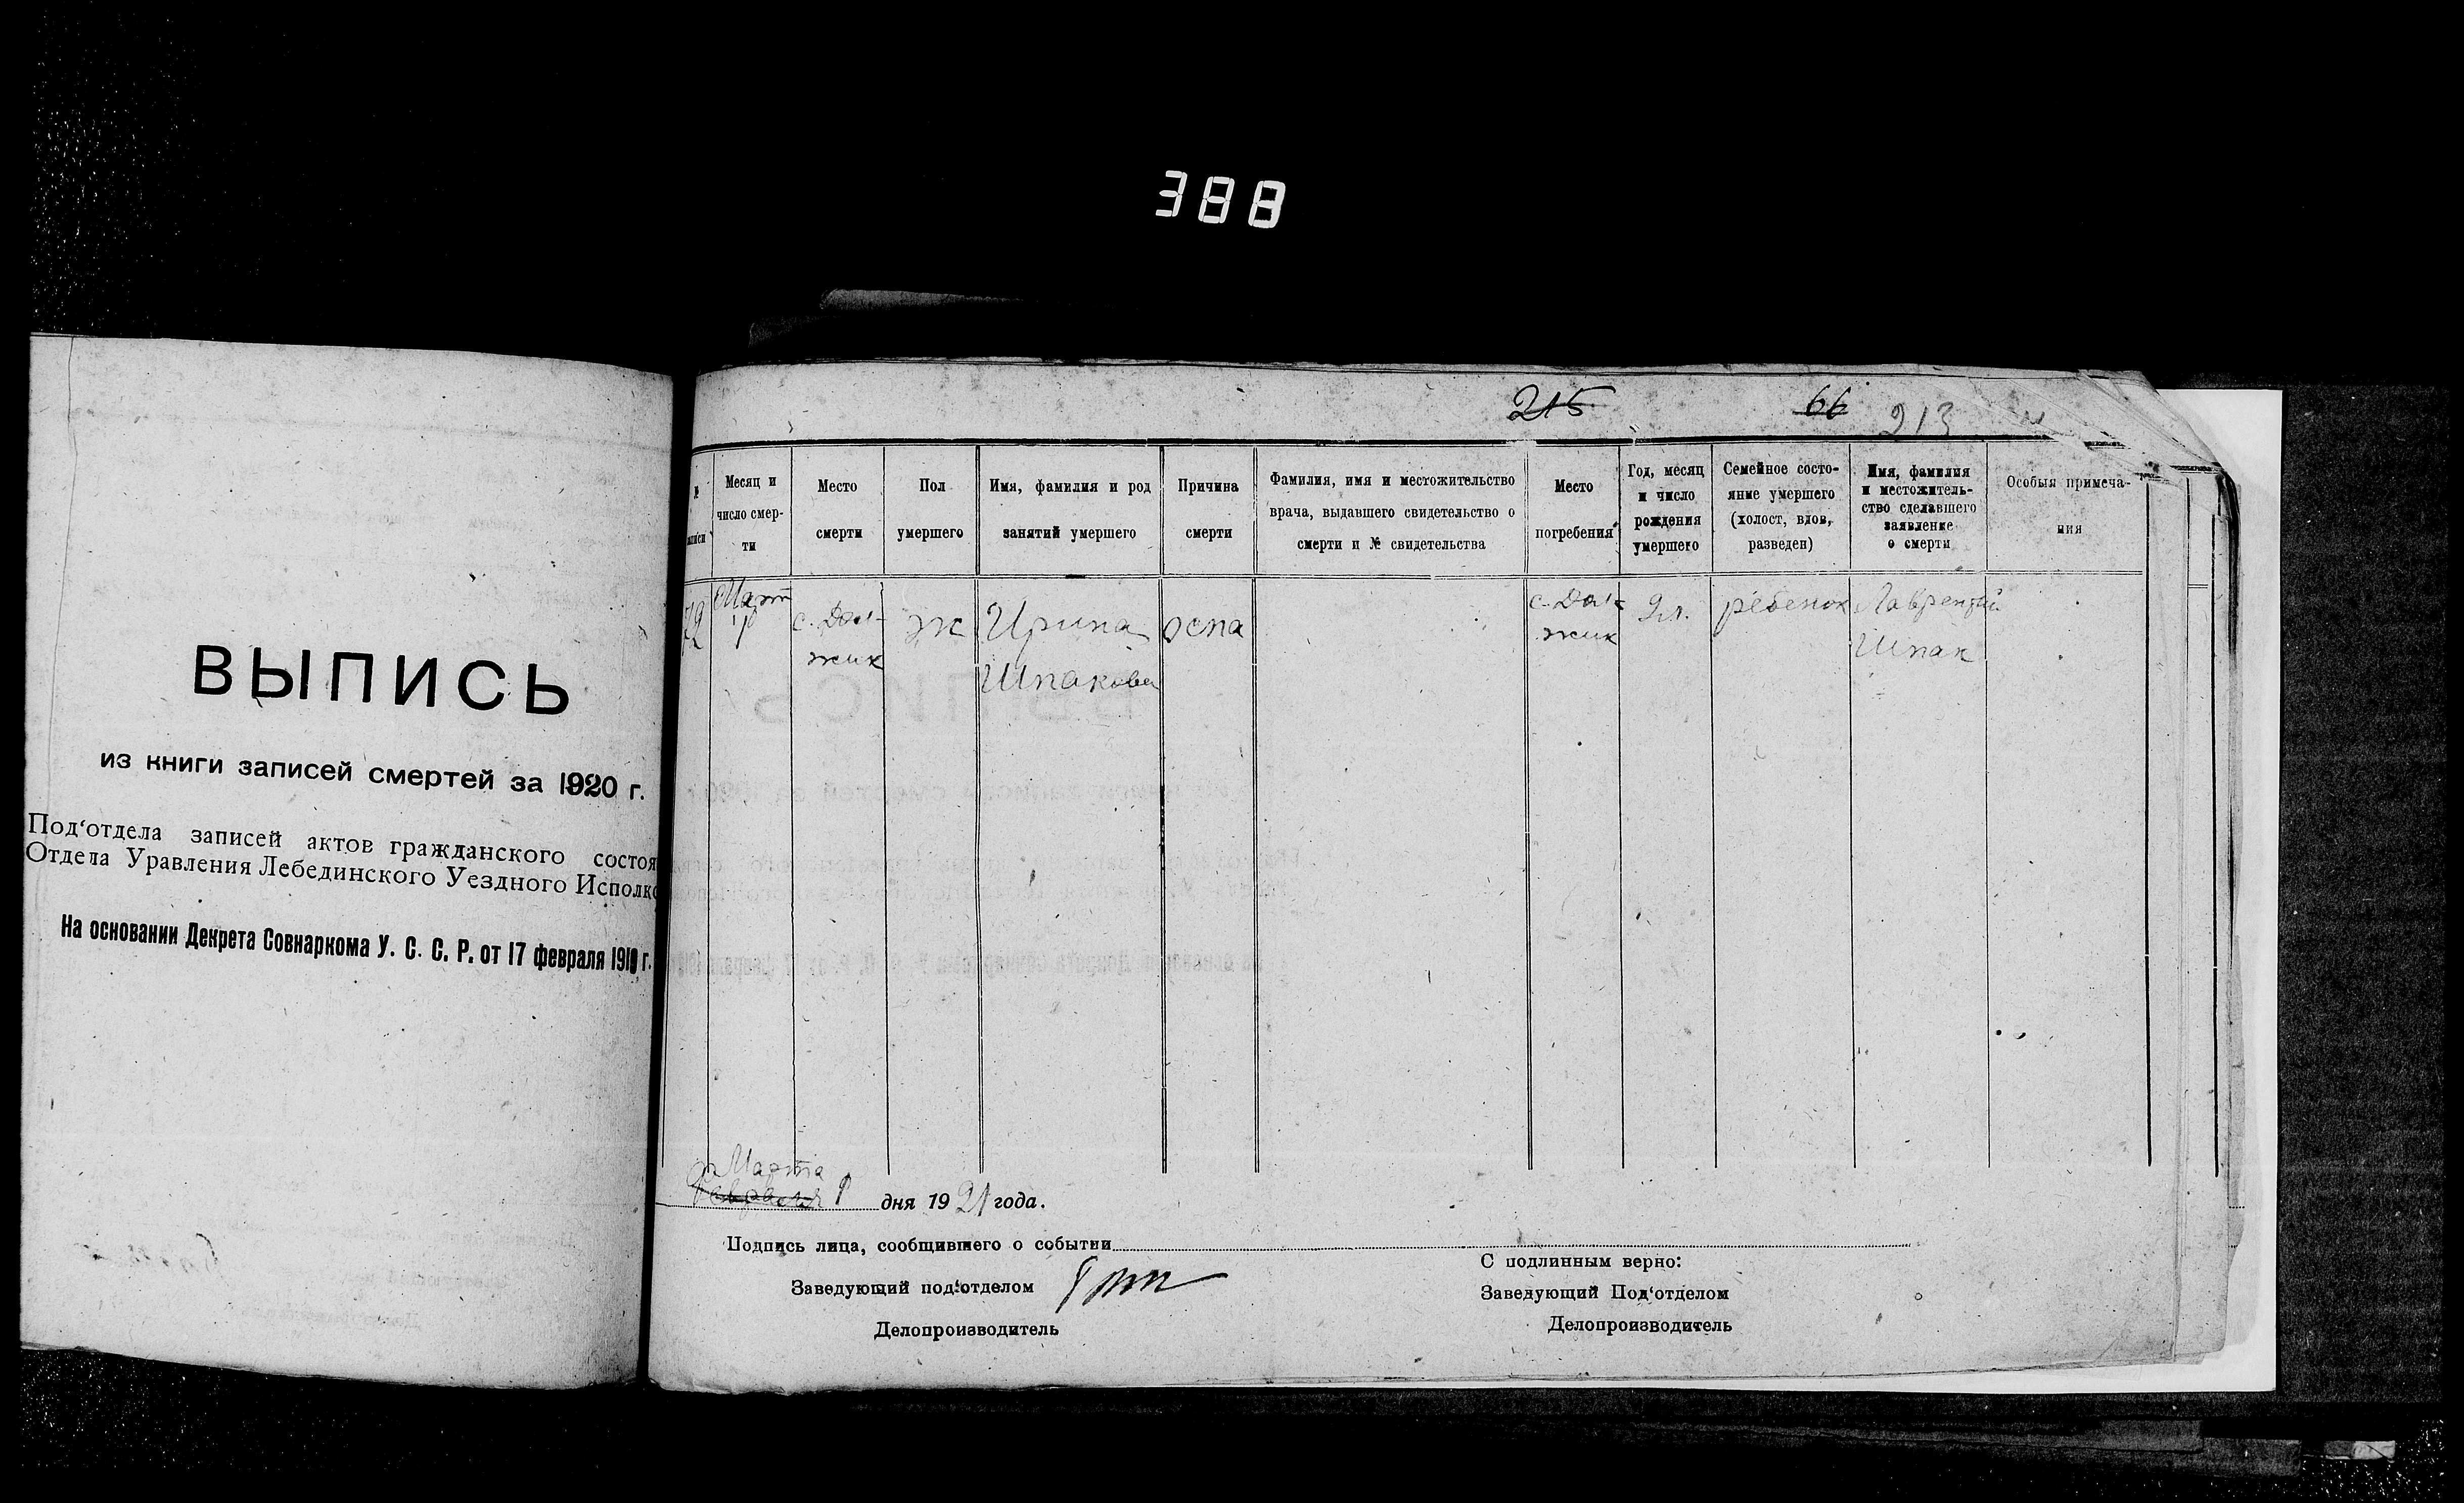 388
ВЫПИСЬ
из книги записей смертей за 1920 г.
Под‘отдела записей актов гражданского состоя
Отдела Уравления Лебединского Уездного Исполко
На основании Декрета Совнаркома У. С. С. Р. от 17 февраля 1919 г.
215 66 213
Месяц и число смер-ти
Место смерти
Пол умершего
Имя, фамилия и род занятий умершего
Причина смерти
Фамилия, имя и местожительство врача, выдавшего свидетельство о смерти и № свидетельства
Место погребения
Год, месяц и число рождения умершего
Семейное состо-яние умершего (холост, вдов, разведен)
Имя, фамилия и местожитель-ство сделавшего заявление о смерти
Особыя примеча-ния
Март
с. Дол-
жик
ж
Ирина
Шпакова
оспа
с. Дол-
жик
ребенок
Лаврентий
Шпак
Марта
Февраля
дня 1921 года.
Подпись лица, сообщившего о событии
Заведующий под‘отделом
Делопроизводитель
С подлинным верно:
Заведующий Под‘отделом
Делопроизводитель